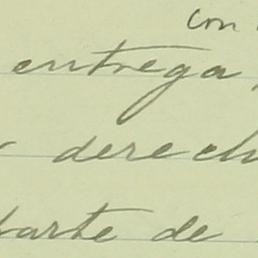 con
entrega
derech
parte de